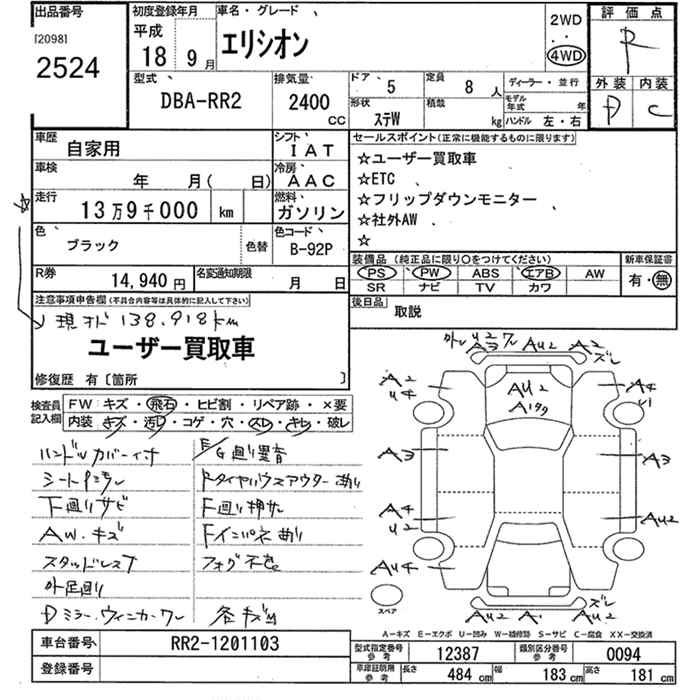 出品番号
[2098]
2524
初度登録年月
平成
18 9月
車名・グレード
エリシオン
2WD
・・
4WD
評価点
R
外装 内装
D C
型式
DBA-RR2
排気量
2400
CC
ドア
5
定員
8 人
ディーラー・並行
形状
ステW
積載
kg
モデル年式
年
ハンドル 左・右
車歴
自家用
シフト
IAT
車検
年 月( 日)
冷房
AAC
走行
13万9千000 km
燃料
ガソリン
色
ブラック
色替
色コード
B-92P
R券
14,940 円
名変通知期限
月 日
セールスポイント(正常に機能するものに限ります)
☆ユーザー買取車
☆ETC
☆フリップダウンモニター
☆社外AW
☆
装備品 (純正品に限り○をつけてください)
PS PW ABS エアB AW
SR ナビ TV カワ
新車保証書
有・無
後日品
取説
注意事項申告欄(不具合内容等は具体的に記入して下さい)
現オド 138,918km
ユーザー買取車
修復歴 有〔箇所 〕
検査員記入欄
FW キズ・飛石・ヒビ割・リペア跡・×要
内装 キズ・汚レ・コゲ・穴・スレ・キレ・破レ
ハンドルカバー付
シート
下廻りサビ
AW.キズ
スタッドレスT
外足廻り
Dミラーウィンカーワレ
Fタイヤハウスアウター
F廻り押サレ
Fインパネ
フォグ不良
各キズ凹
外レ U2 ワレ
A3 AU2 A2
ズレ
AU2
A2
U4
A4
A3
A3
A4
U2
AU2
AU4
スペア
ズレ
AU2 A1 AU2
A―キズ E―エクボ U―凹み W―補修跡 S―サビ C―腐食 XX―交換済
車台番号
RR2-1201103
登録番号
型式指定番号
参考
12387
類別区分番号
参考
0094
車庫証明用
参考
長さ
484 cm
幅
183 cm
高さ
181 cm